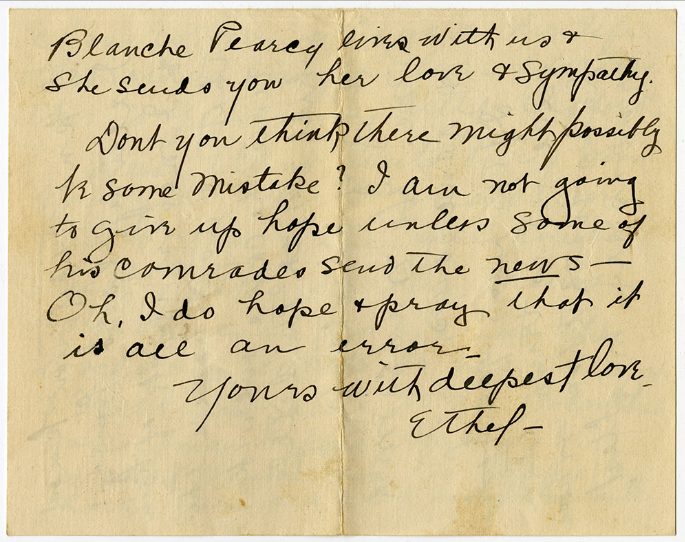 Blanche Pearcy lives with us &
she sends you her love & sympathy.
Dont you think there might possibly
be some mistake? I am not going
to give up hope unless some of
his comrades send the news —
Oh, I do hope & pray that it
is all an error —
Yours with deepest love —
Ethel —